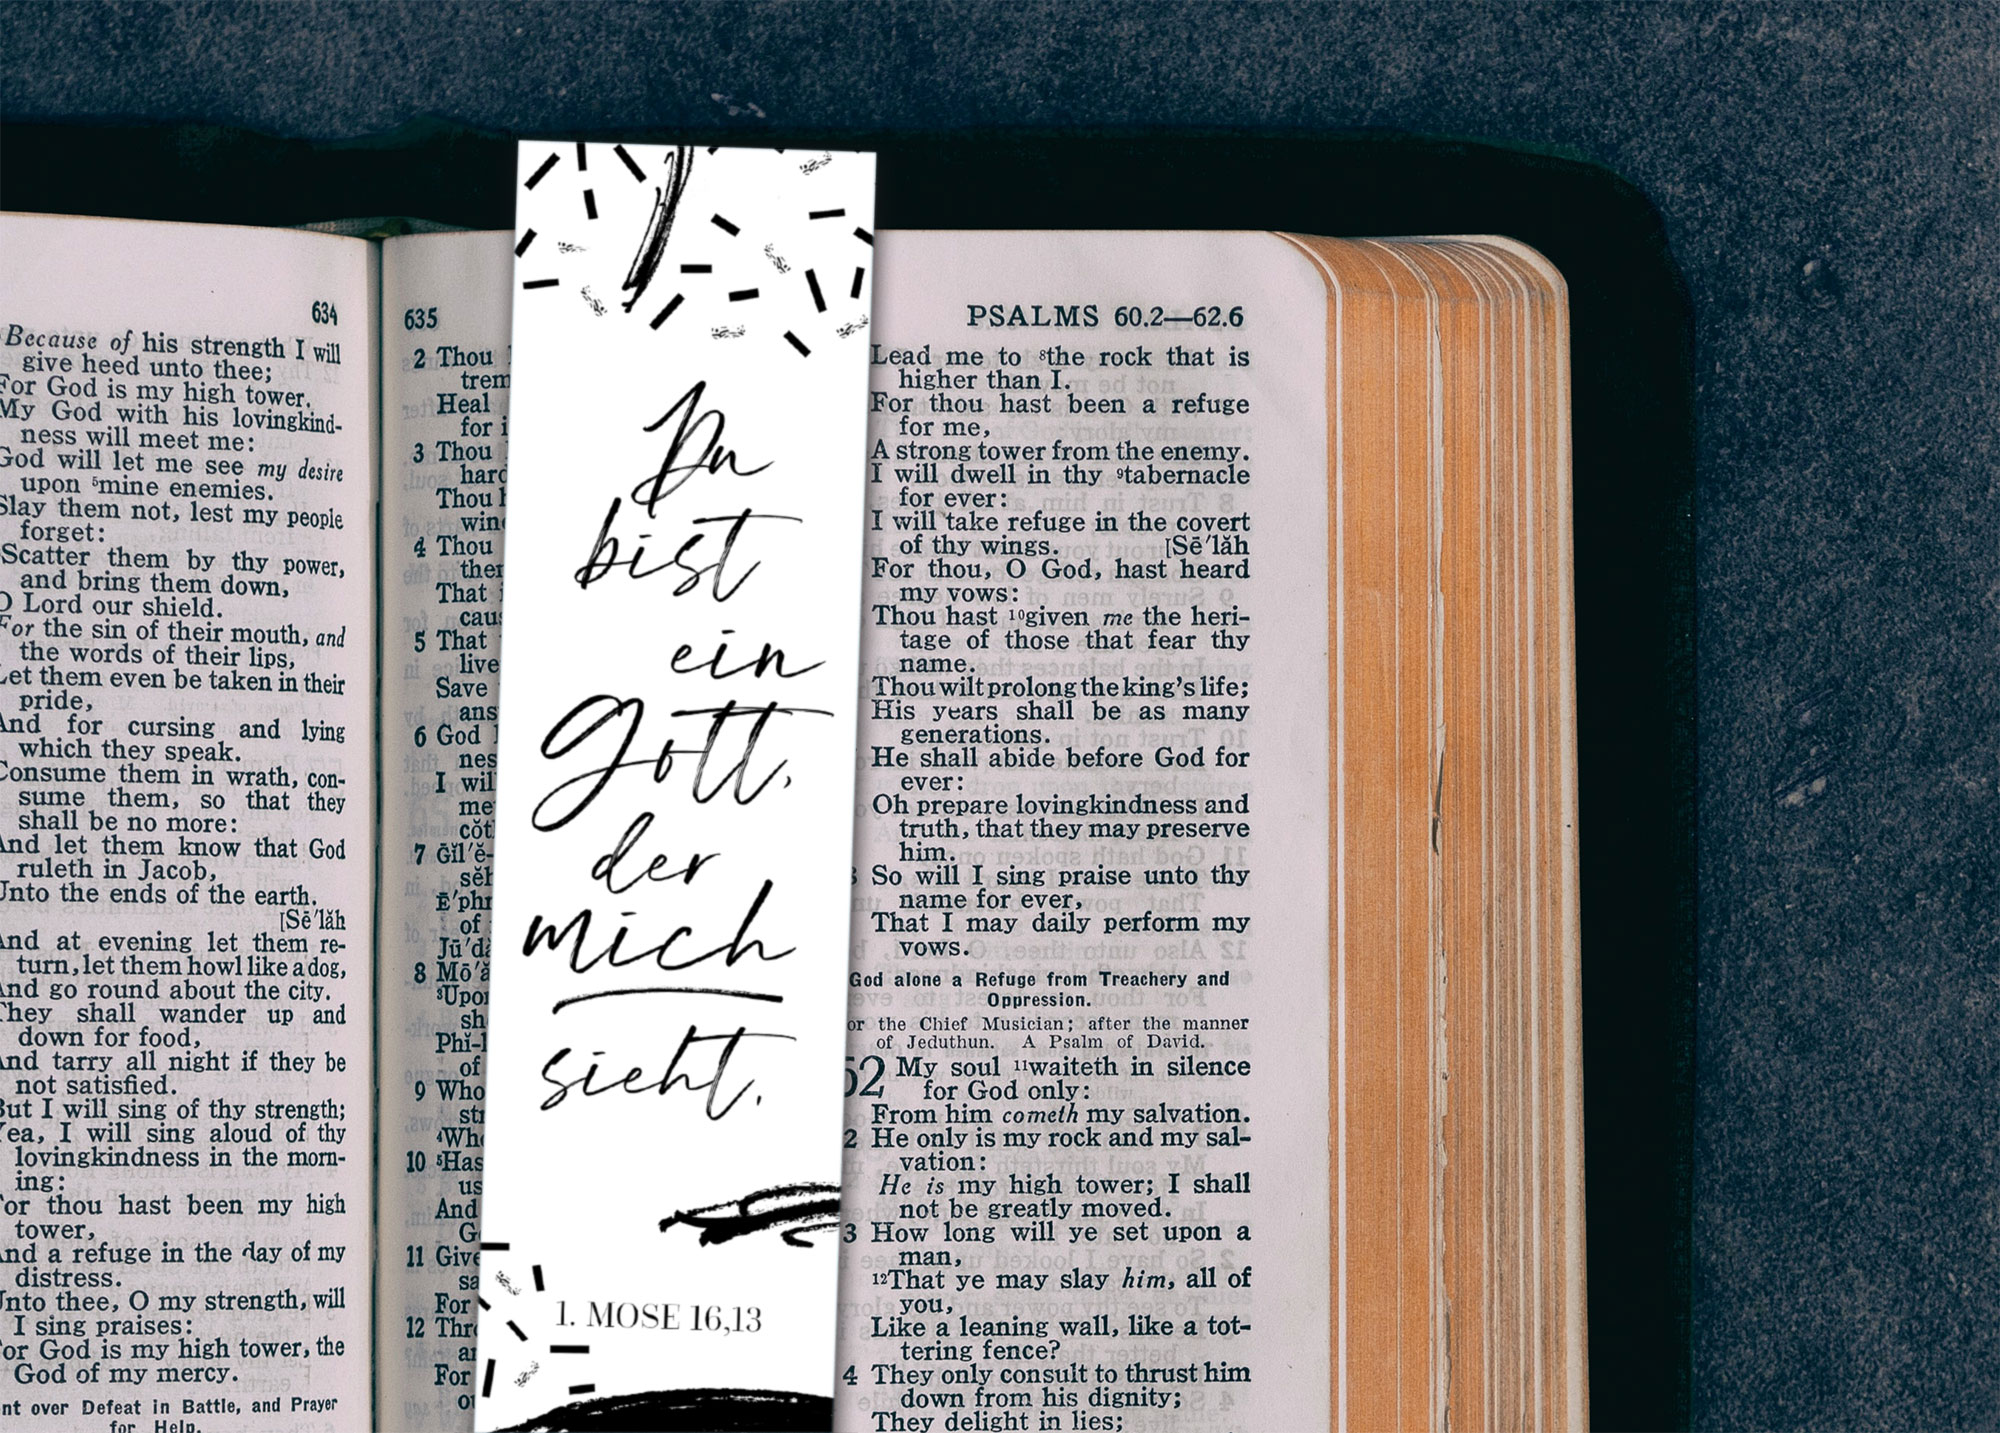 634
Because of his strength I will
give heed unto thee;
For God is my high tower.
My God with his lovingkind-
ness will meet me:
God will let me see my desire
upon ⁵mine enemies.
Slay them not, lest my people
forget:
Scatter them by thy power,
and bring them down,
O Lord our shield.
For the sin of their mouth, and
the words of their lips,
Let them even be taken in their
pride,
And for cursing and lying
which they speak.
Consume them in wrath, con-
sume them, so that they
shall be no more:
And let them know that God
ruleth in Jacob,
Unto the ends of the earth.
[Sē′lăh
And at evening let them re-
turn, let them howl like a dog,
And go round about the city.
They shall wander up and
down for food,
And tarry all night if they be
not satisfied.
But I will sing of thy strength;
Yea, I will sing aloud of thy
lovingkindness in the morn-
ing:
For thou hast been my high
tower,
And a refuge in the day of my
distress.
Unto thee, O my strength, will
I sing praises:
For God is my high tower, the
God of my mercy.
nt over Defeat in Battle, and Prayer
for Help.
635
2 Thou
trem
Heal
for i
3 Thou
hard
Thou h
wine
4 Thou
ther
That i
caus
5 That
live
Save
ans
6 God
nes
I wil
me
cŏt
7 Gĭl′ĕ-
sĕh
Ē′phr
of
Jū′da
8 Mō′ă
³Upon
sh
Phĭ-l
of
9 Who
str
⁴Who
10 ⁵Has
us
And
Go
11 Give
sa
For
12 Thro
an
For
Du
bist
ein
Gott,
der
mich
sieht.
1. MOSE 16,13
PSALMS 60.2—62.6
Lead me to ⁸the rock that is
higher than I.
For thou hast been a refuge
for me,
A strong tower from the enemy.
I will dwell in thy ⁹tabernacle
for ever:
I will take refuge in the covert
of thy wings. [Sē′lăh
For thou, O God, hast heard
my vows:
Thou hast ¹⁰given me the heri-
tage of those that fear thy
name.
Thou wilt prolong the king's life;
His years shall be as many
generations.
He shall abide before God for
ever:
Oh prepare lovingkindness and
truth, that they may preserve
him.
So will I sing praise unto thy
name for ever,
That I may daily perform my
vows.
God alone a Refuge from Treachery and
Oppression.
or the Chief Musician; after the manner
of Jeduthun. A Psalm of David.
62 My soul ¹¹waiteth in silence
for God only:
From him cometh my salvation.
2 He only is my rock and my sal-
vation:
He is my high tower; I shall
not be greatly moved.
3 How long will ye set upon a
man,
¹²That ye may slay him, all of
you,
Like a leaning wall, like a tot-
tering fence?
4 They only consult to thrust him
down from his dignity;
They delight in lies;